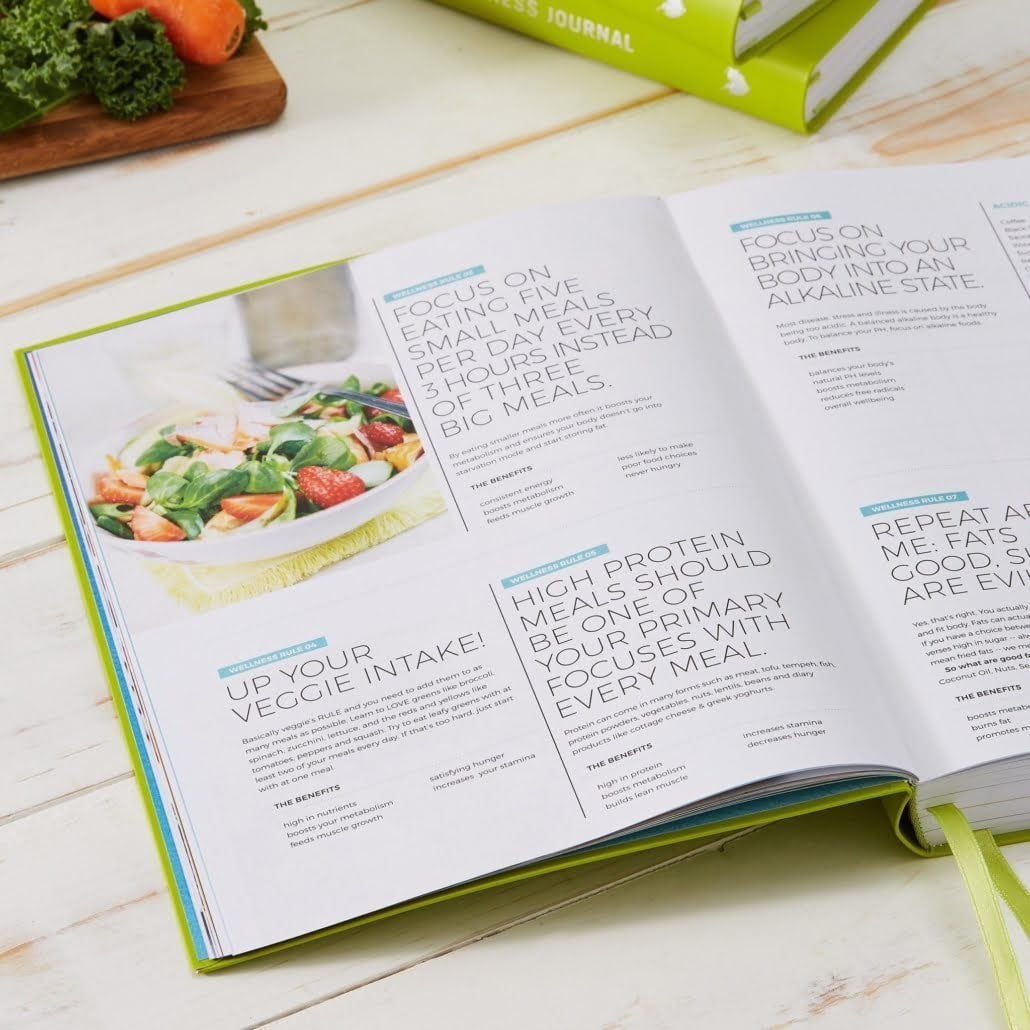 JOURNAL
WELLNESS RULE 03
FOCUS ON
EATING FIVE
SMALL MEALS
PER DAY EVERY
3 HOURS INSTEAD
OF THREE
BIG MEALS.
By eating smaller meals more often it boosts your
metabolism and ensures your body doesn't go into
starvation mode and start storing fat
THE BENEFITS
consistent energy
boosts metabolism
feeds muscle growth
less likely to make
poor food choices
never hungry
WELLNESS RULE 04
UP YOUR
VEGGIE INTAKE!
Basically veggie's RULE and you need to add them to as
many meals as possible. Learn to LOVE greens like broccoli,
spinach, zucchini, lettuce, and the reds and yellows like
tomatoes, peppers and squash. Try to eat leafy greens with at
least two of your meals every day, if that's too hard, just start
with at one meal.
THE BENEFITS
high in nutrients
boosts your metabolism
feeds muscle growth
satisfying hunger
increases your stamina
WELLNESS RULE 05
HIGH PROTEIN
MEALS SHOULD
BE ONE OF
YOUR PRIMARY
FOCUSES WITH
EVERY MEAL.
Protein can come in many forms such as meat, tofu, tempeh, fish,
protein powders, vegetables, nuts, lentils, beans and diary
products like cottage cheese & greek yoghurts.
THE BENEFITS
high in protein
boosts metabolism
builds lean muscle
increases stamina
decreases hunger
WELLNESS RULE 06
FOCUS ON
BRINGING YOUR
BODY INTO AN
ALKALINE STATE.
Most disease, stress and illness is caused by the body
being too acidic. A balanced alkaline body is a healthy
body. To balance your PH, focus on alkaline foods.
THE BENEFITS
balances your body's
natural PH levels
boosts metabolism
reduces free radicals
overall wellbeing
ACIDIC
Coffee
Black
WELLNESS RULE 07
REPEAT
ME: FATS
GOOD,
ARE
Yes, that's right. You actually
and fit body. Fats can
if you have a choice
verses high in sugar --
mean fried fats -- we
So what are good
Coconut Oil, Nuts,
THE BENEFITS
boosts
burns fat
promotes